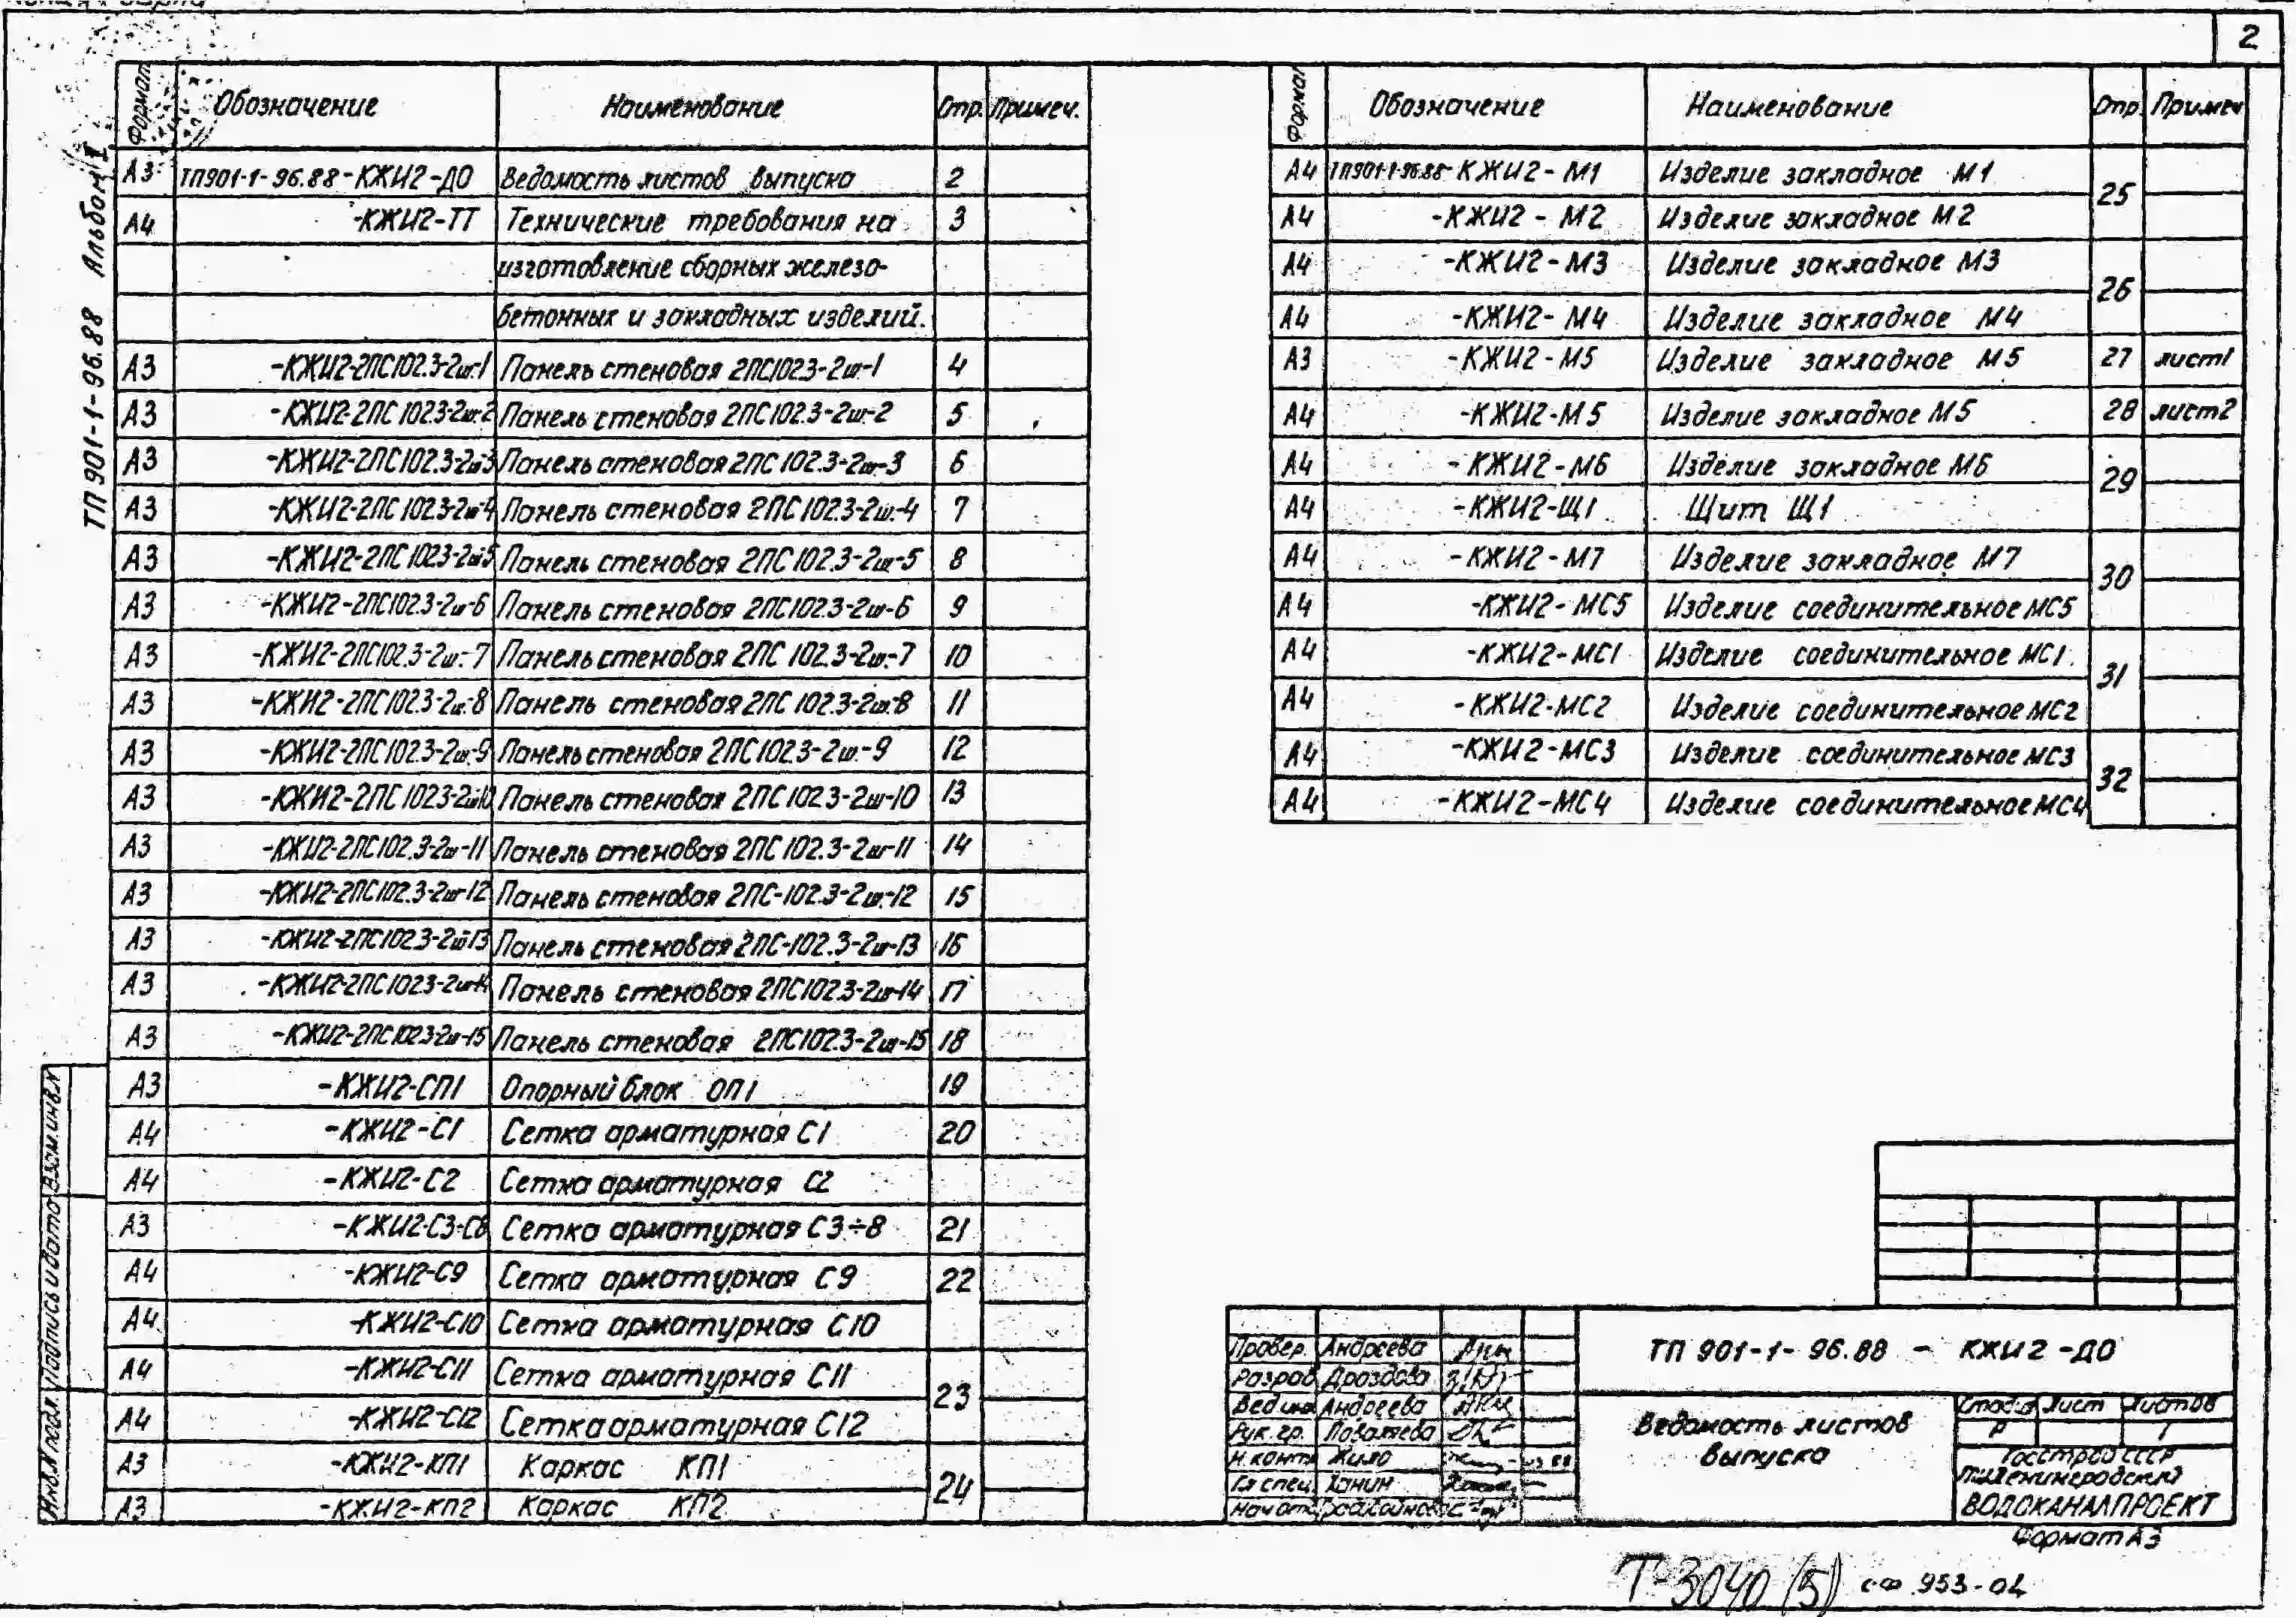 2
ТП 901-1-96.88 Альбом I
Формат Обозначение Наименование Стр. Примеч.
А3 ТП901-1-96.88-КЖИ2-ДО Ведомость листов выпуска 2
А4 -КЖИ2-ТТ Технические требования на 3
изготовление сборных железо-
бетонных и закладных изделий.
А3 -КЖИ2-2ПС102.3-2ш-1 Панель стеновая 2ПС1023-2ш-1 4
А3 -КЖИ2-2ПС1023-2ш-2 Панель стеновая 2ПС102.3-2ш-2 5
А3 -КЖИ2-2ПС102.3-2ш3 Панель стеновая 2ПС102.3-2ш-3 6
А3 -КЖИ2-2ПС1023-2ш-4 Панель стеновая 2ПС102.3-2ш.-4 7
А3 -КЖИ2-2ПС1023-2ш5 Панель стеновая 2ПС102.3-2ш-5 8
А3 -КЖИ2-2ПС102.3-2ш-6 Панель стеновая 2ПС102.3-2ш-6 9
А3 -КЖИ2-2ПС102.3-2ш-7 Панель стеновая 2ПС102.3-2ш.-7 10
А3 -КЖИ2-2ПС102.3-2ш.-8 Панель стеновая 2ПС102.3-2ш.-8 11
А3 -КЖИ2-2ПС102.3-2ш-9 Панель стеновая 2ПС102.3-2ш.-9 12
А3 -КЖИ2-2ПС1023-2ш10 Панель стеновая 2ПС102.3-2ш-10 13
А3 -КЖИ2-2ПС102.3-2ш-11 Панель стеновая 2ПС102.3-2ш-11 14
А3 -КЖИ2-2ПС102.3-2ш-12 Панель стеновая 2ПС-102.3-2ш.-12 15
А3 -КЖИ2-2ПС102.3-2ш13 Панель стеновая 2ПС-102.3-2ш-13 16
А3 -КЖИ2-2ПС1023-2ш-14 Панель стеновая 2ПС102.3-2ш-14 17
А3 -КЖИ2-2ПС1023-2ш-15 Панель стеновая 2ПС102.3-2ш-15 18
А3 -КЖИ2-СП1 Опорный блок ОП1 19
А4 -КЖИ2-С1 Сетка арматурная С1 20
А4 -КЖИ2-С2 Сетка арматурная С2
А3 -КЖИ2-С3-С8 Сетка арматурная С3÷8 21
А4 -КЖИ2-С9 Сетка арматурная С9 22
А4 -КЖИ2-С10 Сетка арматурная С10
А4 -КЖИ2-С11 Сетка арматурная С11 23
А4 -КЖИ2-С12 Сетка арматурная С12
А3 -КЖИ2-КП1 Каркас КП1 24
А3 -КЖИ2-КП2 Каркас КП2
Формат Обозначение Наименование Стр. Примеч
А4 ТП901-1-96.88-КЖИ2-М1 Изделие закладное М1 25
А4 -КЖИ2-М2 Изделие закладное М2
А4 -КЖИ2-М3 Изделие закладное М3 26
А4 -КЖИ2-М4 Изделие закладное М4
А3 -КЖИ2-М5 Изделие закладное М5 27 лист1
А4 -КЖИ2-М5 Изделие закладное М5 28 лист2
А4 -КЖИ2-М6 Изделие закладное М6 29
А4 -КЖИ2-Щ1 Щит Щ1
А4 -КЖИ2-М7 Изделие закладное М7 30
А4 -КЖИ2-МС5 Изделие соединительное МС5
А4 -КЖИ2-МС1 Изделие соединительное МС1 31
А4 -КЖИ2-МС2 Изделие соединительное МС2
А4 -КЖИ2-МС3 Изделие соединительное МС3 32
А4 -КЖИ2-МС4 Изделие соединительное МС4
Инв.N подл. Подпись и дата Взам.инв.N
Провер. Андреева
Разраб Дроздова
Вед инж Андреева
Рук. гр. Поваляева
Н. контр Жило
Гл спец. Ханин
Нач отд
ТП 901-1-96.88 - КЖИ2-ДО
Ведомость листов
выпуска
Стадия Лист Листов
Р 1
Госстрой СССР
Ленинградский
ВОДОКАНАЛПРОЕКТ
Формат А3
Т-3040 (5) сф 953-04